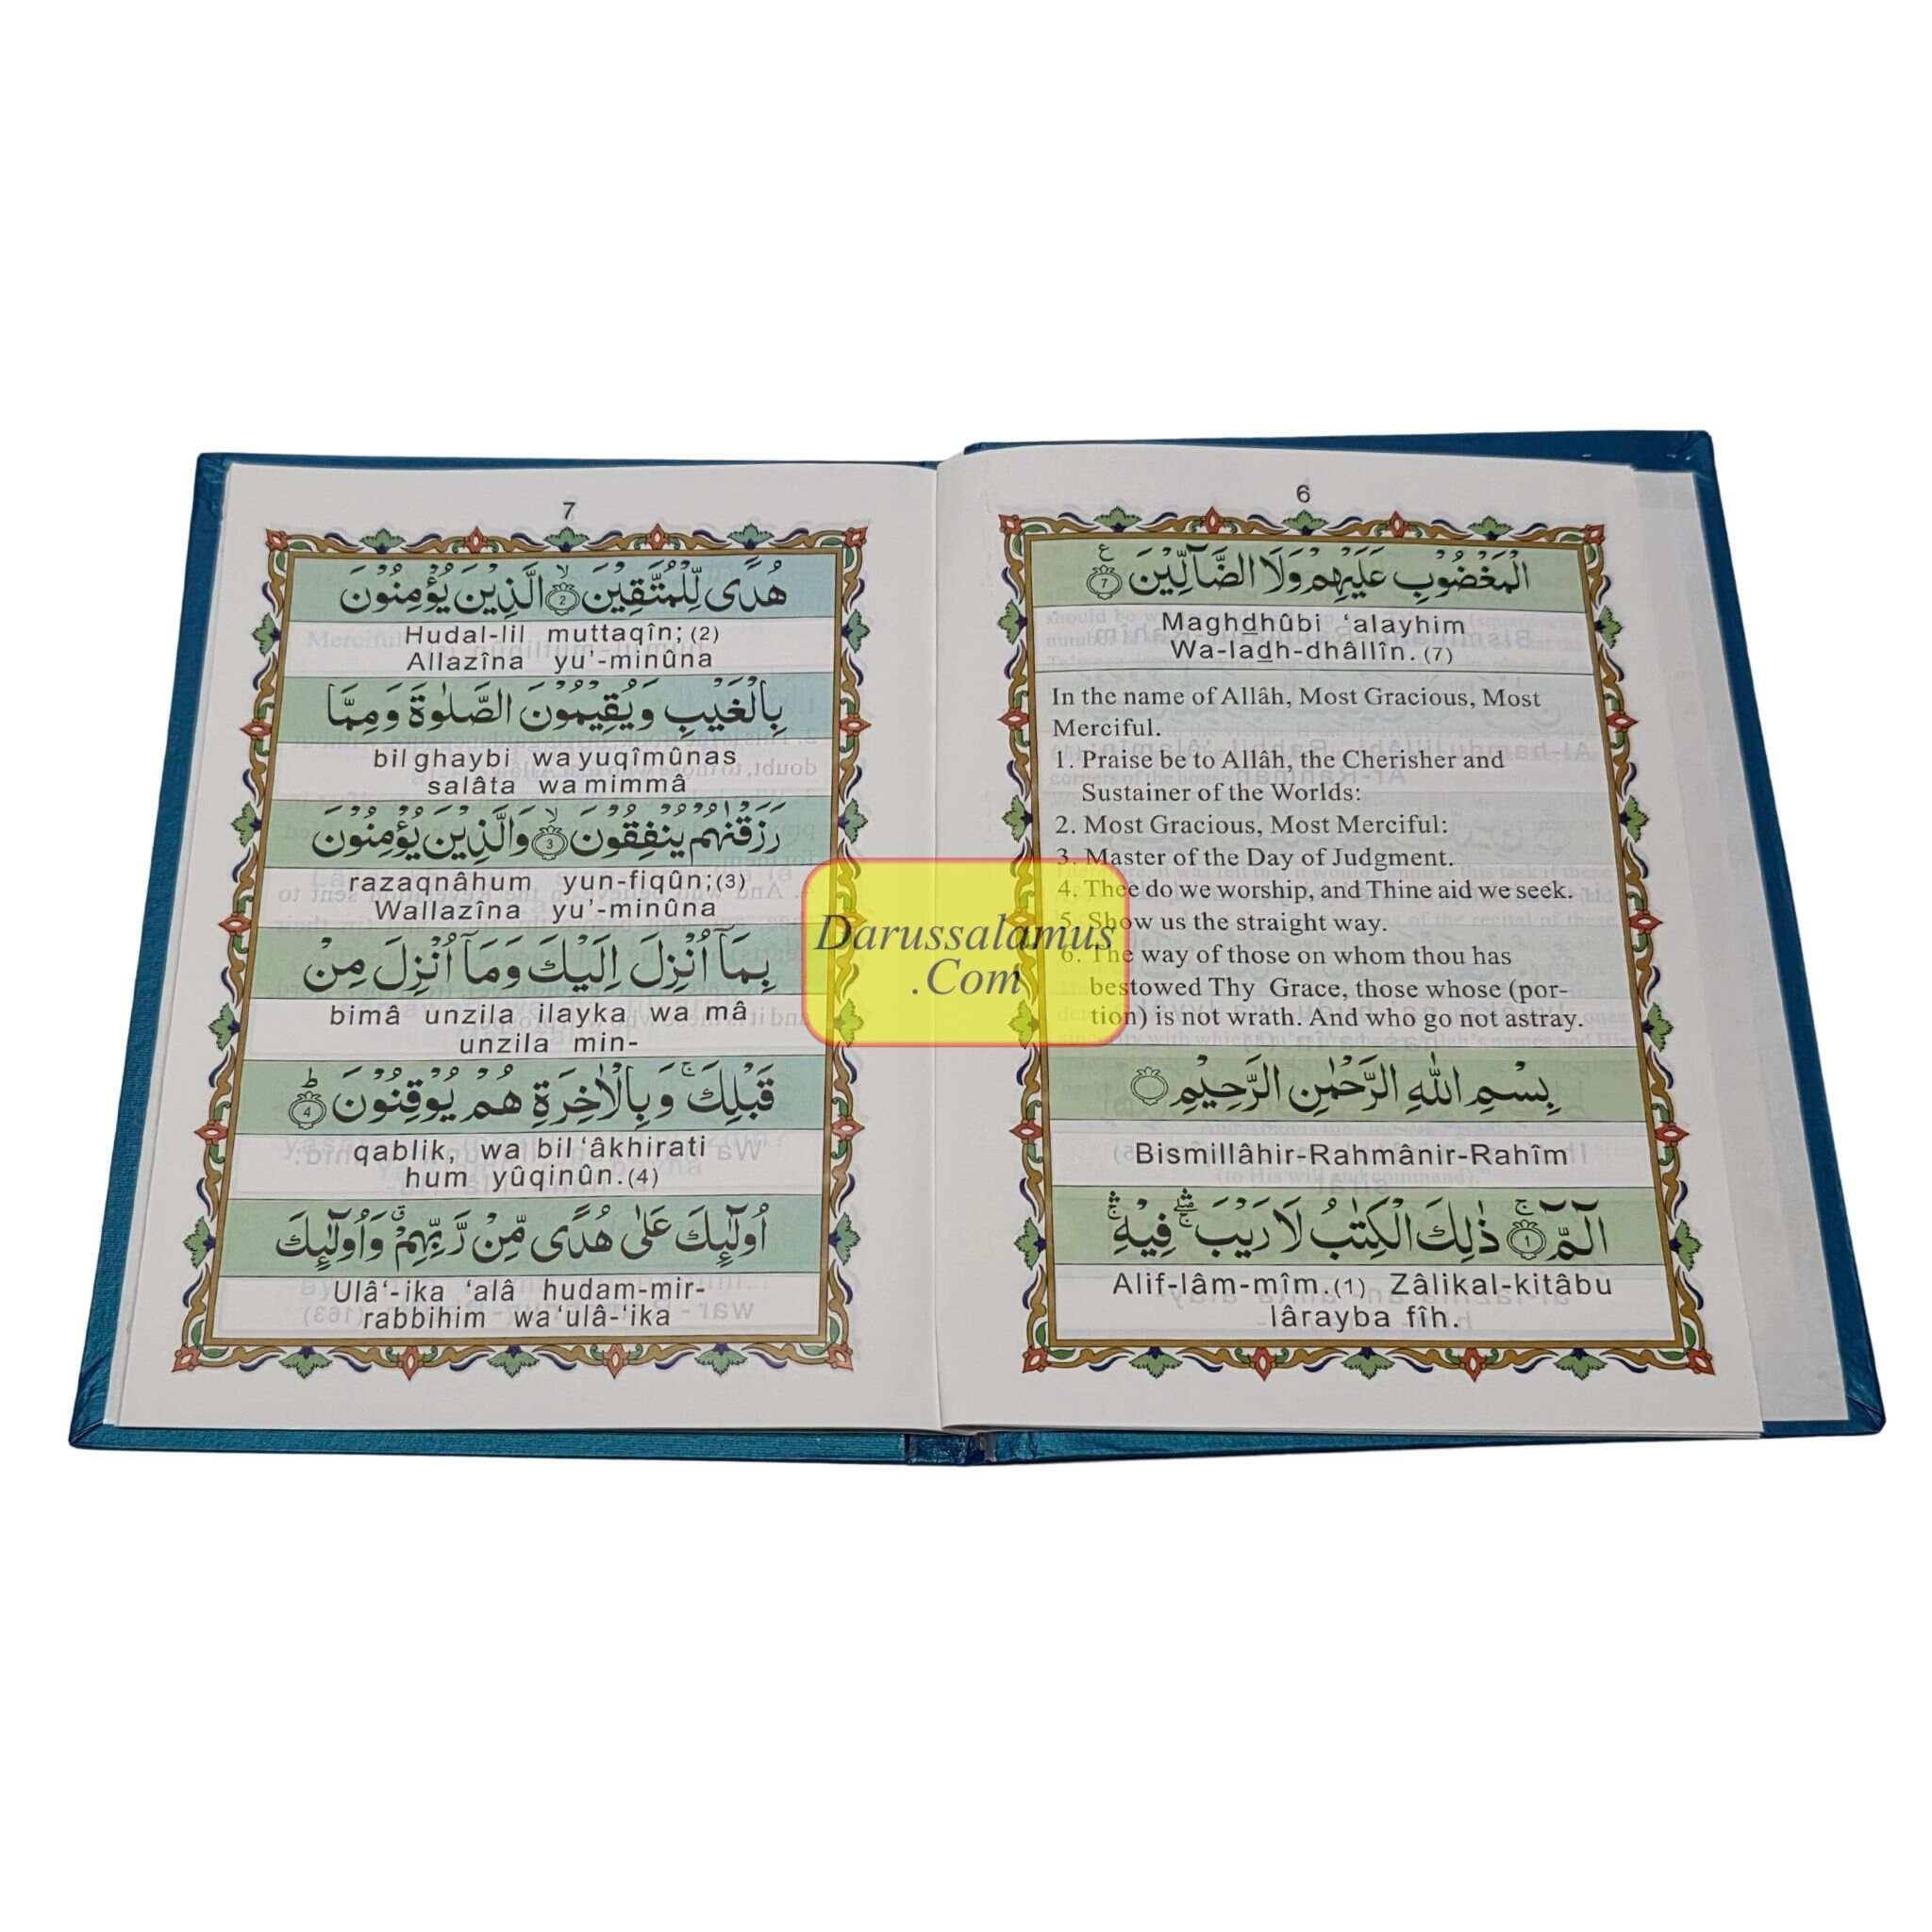 6
الْمَغْضُوْبِ عَلَيْهِمْ وَلَا الضَّآلِّيْنَ ۝7 ع
Maghdhûbi ‘alayhim
Wa-ladh-dhâllîn. (7)
In the name of Allâh, Most Gracious, Most
Merciful.
1. Praise be to Allâh, the Cherisher and
Sustainer of the Worlds:
2. Most Gracious, Most Merciful:
3. Master of the Day of Judgment.
4. Thee do we worship, and Thine aid we seek.
5. Show us the straight way.
6. The way of those on whom thou has
bestowed Thy Grace, those whose (por-
tion) is not wrath. And who go not astray.
بِسْمِ اللّٰهِ الرَّحْمٰنِ الرَّحِيْمِ ۝
Bismillâhir-Rahmânir-Rahîm
الٓمّٓ ۚ ۝1 ذٰلِكَ الْكِتٰبُ لَا رَيْبَ ۛۖۚ فِيْهِ ۛۚ
Alif-lâm-mîm.(1) Zâlikal-kitâbu
lârayba fîh.
7
هُدًى لِّلْمُتَّقِيْنَ ۙ ۝2 الَّذِيْنَ يُؤْمِنُوْنَ
Hudal-lil muttaqîn; (2)
Allazîna yu’-minûna
بِالْغَيْبِ وَيُقِيْمُوْنَ الصَّلٰوةَ وَمِمَّا
bil ghaybi wa yuqîmûnas
salâta wa mimmâ
رَزَقْنٰهُمْ يُنْفِقُوْنَ ۙ ۝3 وَالَّذِيْنَ يُؤْمِنُوْنَ
razaqnâhum yun-fiqûn;(3)
Wallazîna yu’-minûna
بِمَآ اُنْزِلَ اِلَيْكَ وَمَآ اُنْزِلَ مِنْ
bimâ unzila ilayka wa mâ
unzila min-
قَبْلِكَ ۚ وَبِالْاٰخِرَةِ هُمْ يُوْقِنُوْنَ ؕ ۝4
qablik, wa bil ‘âkhirati
hum yûqinûn.(4)
اُولٰٓئِكَ عَلٰى هُدًى مِّنْ رَّبِّهِمْ ۗ وَاُولٰٓئِكَ
Ulâ‘-ika ‘alâ hudam-mir-
rabbihim wa ‘ulâ-‘ika
Darussalamus
.Com